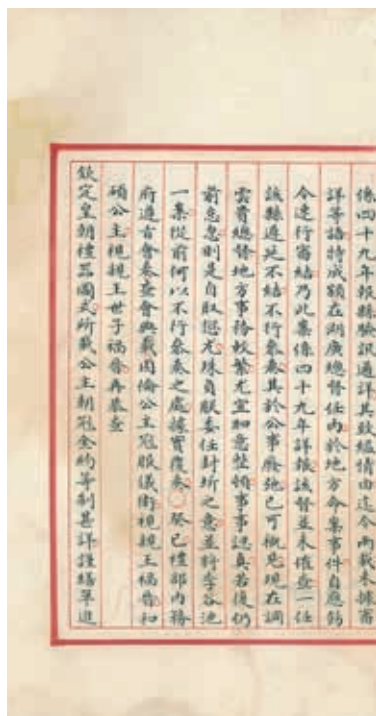 係四十九年報縣驗訊通詳其致縊情由迄今兩載未據審
詳等語特成額在湖廣總督任內於地方命案事件自應飭
令速行審結乃此案係四十九年詳報該督並未催查一任
該縣遲延不結不行參奏其於公事廢弛已可概見現在調
雲貴總督地方事務較繁尤宜加意整頓事事認真若復仍
前怠忽則是自取愆尤殊負朕委任封圻之意並將李谷池
一案從前何以不行參奏之處據實覆奏○癸巳禮部內務
府遵旨會奏查會典載固倫公主冠服儀衛視親王福晉和
碩公主視親王世子福晉再恭查
欽定皇朝禮器圖式所載公主朝冠金約等制甚詳謹繕單進